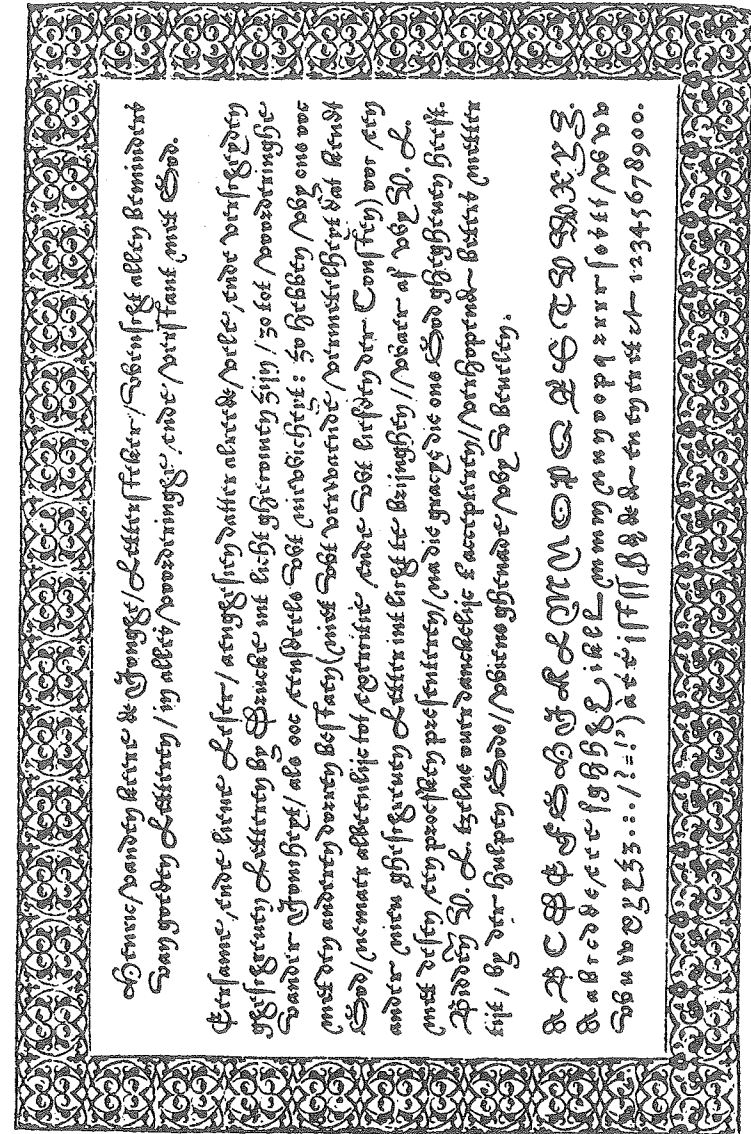 Henric vanden keere de Jonghe / Lettersteker / Wenscht allen Beminders
van goeden Letteren / in alles voorderinghe, ende verstant met God.
Eersame, ende lieve Leser / aenghesien datter alreede vele, ende verscheyden
gheschreven Letteren by Drucke int licht ghecomen zijn / zo tot voorderinghe
vander Joncheyt / als ooc eensdeels wat nieuwicheyts : zo hebben wy ons ooc
met den anderen (niet wat verwaende vermetelheyt dat kendt
God / nemaer alleenlijc tot exercitie ende wat liefden der Consten) een
ander nieu gheschreven Letter int licht te bringhen / waer af wy W. L.
met desen een proefken presenteren / na die gracie die ons God ghegheven heeft.
Bidden W. L. tzelve danckelijc t'accepteren / verhopende beters metter
tijt, by der hulpen Gods / wiens ghenade wy bevelen.
A B C D E F G H I K L M N O P Q R S T V W X Y Z.
a b c d e f g h i k l m n o p q r s t v
v u w x y z . : , / ? = ! ' ) 1 2 3 4 5 6 7 8 9 0 0.